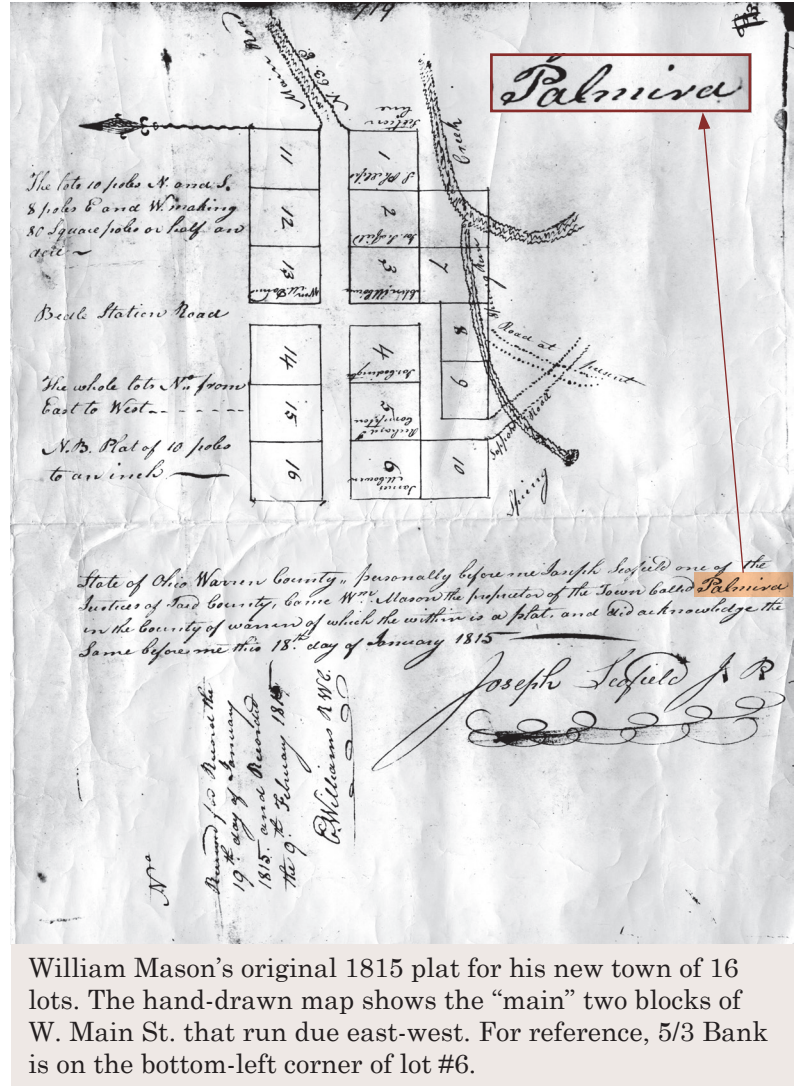 119
Palmira
Main Road
N. 63 E.
Section
line
Creek
11
1
12
2
13
3
7
14
4
8
15
5
9
16
6
10
The lots 10 poles N. and S.
8 poles E and W. making
80 Square poles or half an
acre ~
Bedle Station Road
The whole lots No. from
East to West
N.B. Plat of 10 poles
to an inch
Spring Run
Road at present
Road
Spring
State of Ohio Warren County,, personally before me Joseph Scofield one of the
Justices of Said County, Came Wm. Mason the proprietor of the Town Called Palmira
in the County of warren of which the within is a plat, and did acknowledge the
Same before me this 18th day of January 1815
Joseph Scofield J P
Received for Record the
19th day of January
1815 and Recorded
the 9th February 1815
E. Williams R.W.C.
William Mason's original 1815 plat for his new town of 16
lots. The hand-drawn map shows the “main” two blocks of
W. Main St. that run due east-west. For reference, 5/3 Bank
is on the bottom-left corner of lot #6.